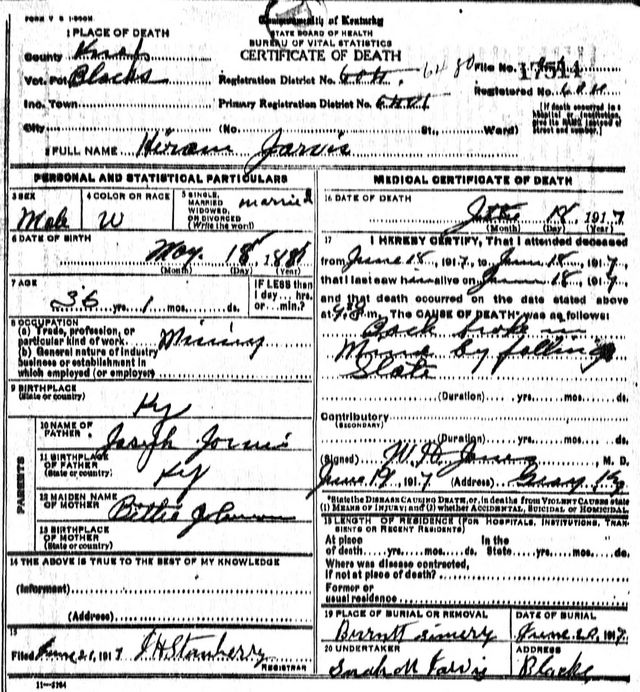 FORM V S 1-
Commonwealth of Kentucky
STATE BOARD OF HEALTH
BUREAU OF VITAL STATISTICS
CERTIFICATE OF DEATH
1 PLACE OF DEATH
County Knox
Vot. Pct Blacks
Inc. Town
City
Registration District No.
Primary Registration District No.
(No. St., Ward)
File No. 17514
Registered No.
(If death occurred in a hospital or institution, give its NAME instead of street and number.)
2 FULL NAME Hiram Jarvis
PERSONAL AND STATISTICAL PARTICULARS
3 SEX
Male
4 COLOR OR RACE
W
5 SINGLE, MARRIED WIDOWED, OR DIVORCED (Write the word)
married
6 DATE OF BIRTH
May 18
(Month) (Day) (Year)
7 AGE
36 yrs. 1 mos. ds.
IF LESS than 1 day... hrs. or... min.?
8 OCCUPATION
(a) Trade, profession, or particular kind of work. Mining
(b) General nature of industry business or establishment in which employed (or employer)
9 BIRTHPLACE
(State or country)
Ky
PARENTS
10 NAME OF FATHER
Joseph
11 BIRTHPLACE OF FATHER
(State or country)
Ky
12 MAIDEN NAME OF MOTHER
Bettie
13 BIRTHPLACE OF MOTHER
(State or country)
14 THE ABOVE IS TRUE TO THE BEST OF MY KNOWLEDGE
(Informant)
(Address)
15
Filed June 21, 1917 J H Stanberry
REGISTRAR
11-5184
MEDICAL CERTIFICATE OF DEATH
16 DATE OF DEATH
18 1917
(Month) (Day) (Year)
17 I HEREBY CERTIFY, That I attended deceased
from June 18, 1917, to June 18, 1917,
that I last saw him alive on June 18, 1917,
and that death occurred on the date stated above
at m. The CAUSE OF DEATH was as follows:
Back broke in
by falling
Slate
(Duration) yrs. mos. ds.
Contributory
(SECONDARY)
(Duration) yrs. mos. ds.
(Signed) W. Jones, M. D.
June 19, 1917 (Address) Gray Ky
*State the DISEASE CAUSING DEATH, or, in deaths from VIOLENT CAUSES state (1) MEANS OF INJURY; and (2) whether ACCIDENTAL, SUICIDAL or HOMICIDAL
18 LENGTH OF RESIDENCE (FOR HOSPITALS, INSTITUTIONS, TRANSIENTS OR RECENT RESIDENTS)
At place of death yrs. mos. ds. In the State yrs. mos. ds.
Where was disease contracted,
If not at place of death?
Former or usual residence
19 PLACE OF BURIAL OR REMOVAL
DATE OF BURIAL
June 20, 1917
20 UNDERTAKER
ADDRESS
Jarvis Blacks